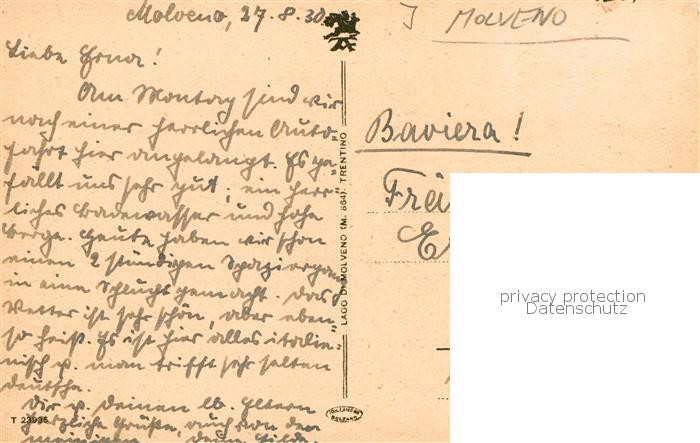 Molveno, 27.8.30
J MOLVENO
Liebe Erna!
Am Montag sind wir
nach einer herrlichen Auto-
fahrt hier angelangt. Es ge-
fällt uns sehr gut; ein herr-
liches Badewasser und hohe
Berge. Heute haben wir schon
einen 2 stündigen Spaziergang
in eine Schlucht gemacht. Das
Wetter ist sehr schön, aber eben-
so heiß. Es ist hier alles italie-
nisch u. man trifft sehr selten
deutsche.
Dir u. deinen lb. Eltern
herzliche Grüße, auch von den
meinigen
T 23935
LAGO DI MOLVENO (M. 864). TRENTINO
Baviera!
privacy protection
Datenschutz